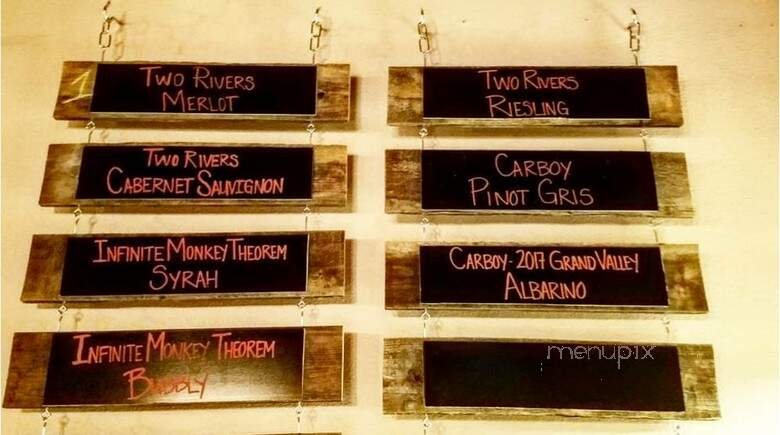 1
TWO RIVERS
MERLOT
TWO RIVERS
CABERNET SAUVIGNON
INFINITE MONKEY THEOREM
SYRAH
INFINITE MONKEY THEOREM
BUBBLY
TWO RIVERS
RIESLING
CARBOY
PINOT GRIS
CARBOY - 2017 GRAND VALLEY
ALBARINO
menupix